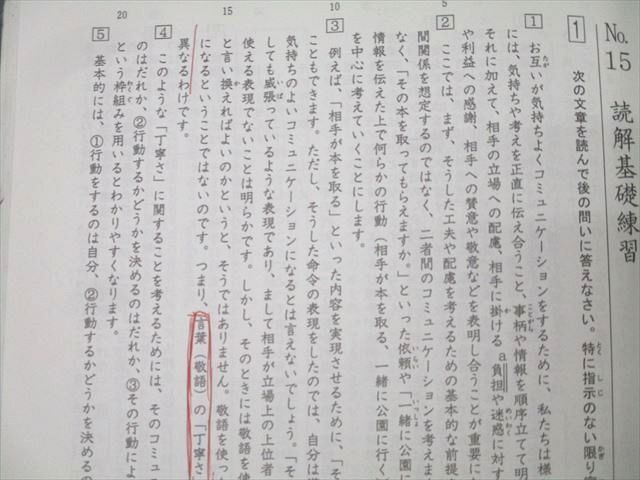 No.15 読解基礎練習
1 次の文章を読んで後の問いに答えなさい。特に指示のない限り
1 お互いが気持ちよくコミュニケーションをするために、私たちは様
には、気持ちや考えを正直に伝え合うこと、事柄や情報を順序立てて明
それに加えて、相手の立場への配慮、相手に掛けるa負担や迷惑に対す
や利益への感謝、相手への賛意や敬意などを表明し合うことが重要に
2 ここでは、まず、そうした工夫や配慮を考えるための基本的な前提
間関係を想定するのではなく、二者間のコミュニケーションを考えま
なく、「その本を取ってもらえますか。」といった依頼や「一緒に公園に
情報を伝えた上で何らかの行動（相手が本を取る、一緒に公園に行く
を中心に考えていくことにします。
3 例えば、「相手が本を取る」といった内容を実現させるために、「そ
こともできます。ただし、そうした命令の表現をしたのでは、自分は
気持ちのよいコミュニケーションになるとは言えないでしょう。「そ
しても威張っているような表現であり、まして相手が立場上の上位者
使える表現でないことは明らかです。しかし、そのときには敬語を使
と言い換えればよいのかというと、そうではありません。敬語を使っ
になるということではないのです。つまり、言葉（敬語）の「丁寧さ」
異なるわけです。
4 このような「丁寧さ」に関することを考えるためには、そのコミュ
のはだれか、②行動するかどうかを決めるのはだれか、③その行動によ
という枠組みを用いるとわかりやすくなります。
5 基本的には、①行動をするのは自分、②行動するかどうかを決めるの
5
10
15
20